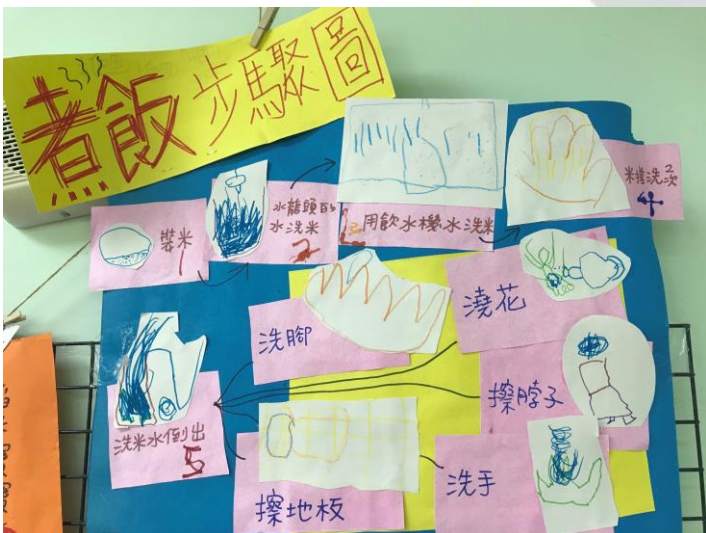 煮飯步驟圖
裝米
1
水龍頭的
水洗米
2
用飲水機水洗米
米撥洗2次
4
洗米水倒出
5
洗腳
澆花
擦脖子
擦地板
洗手